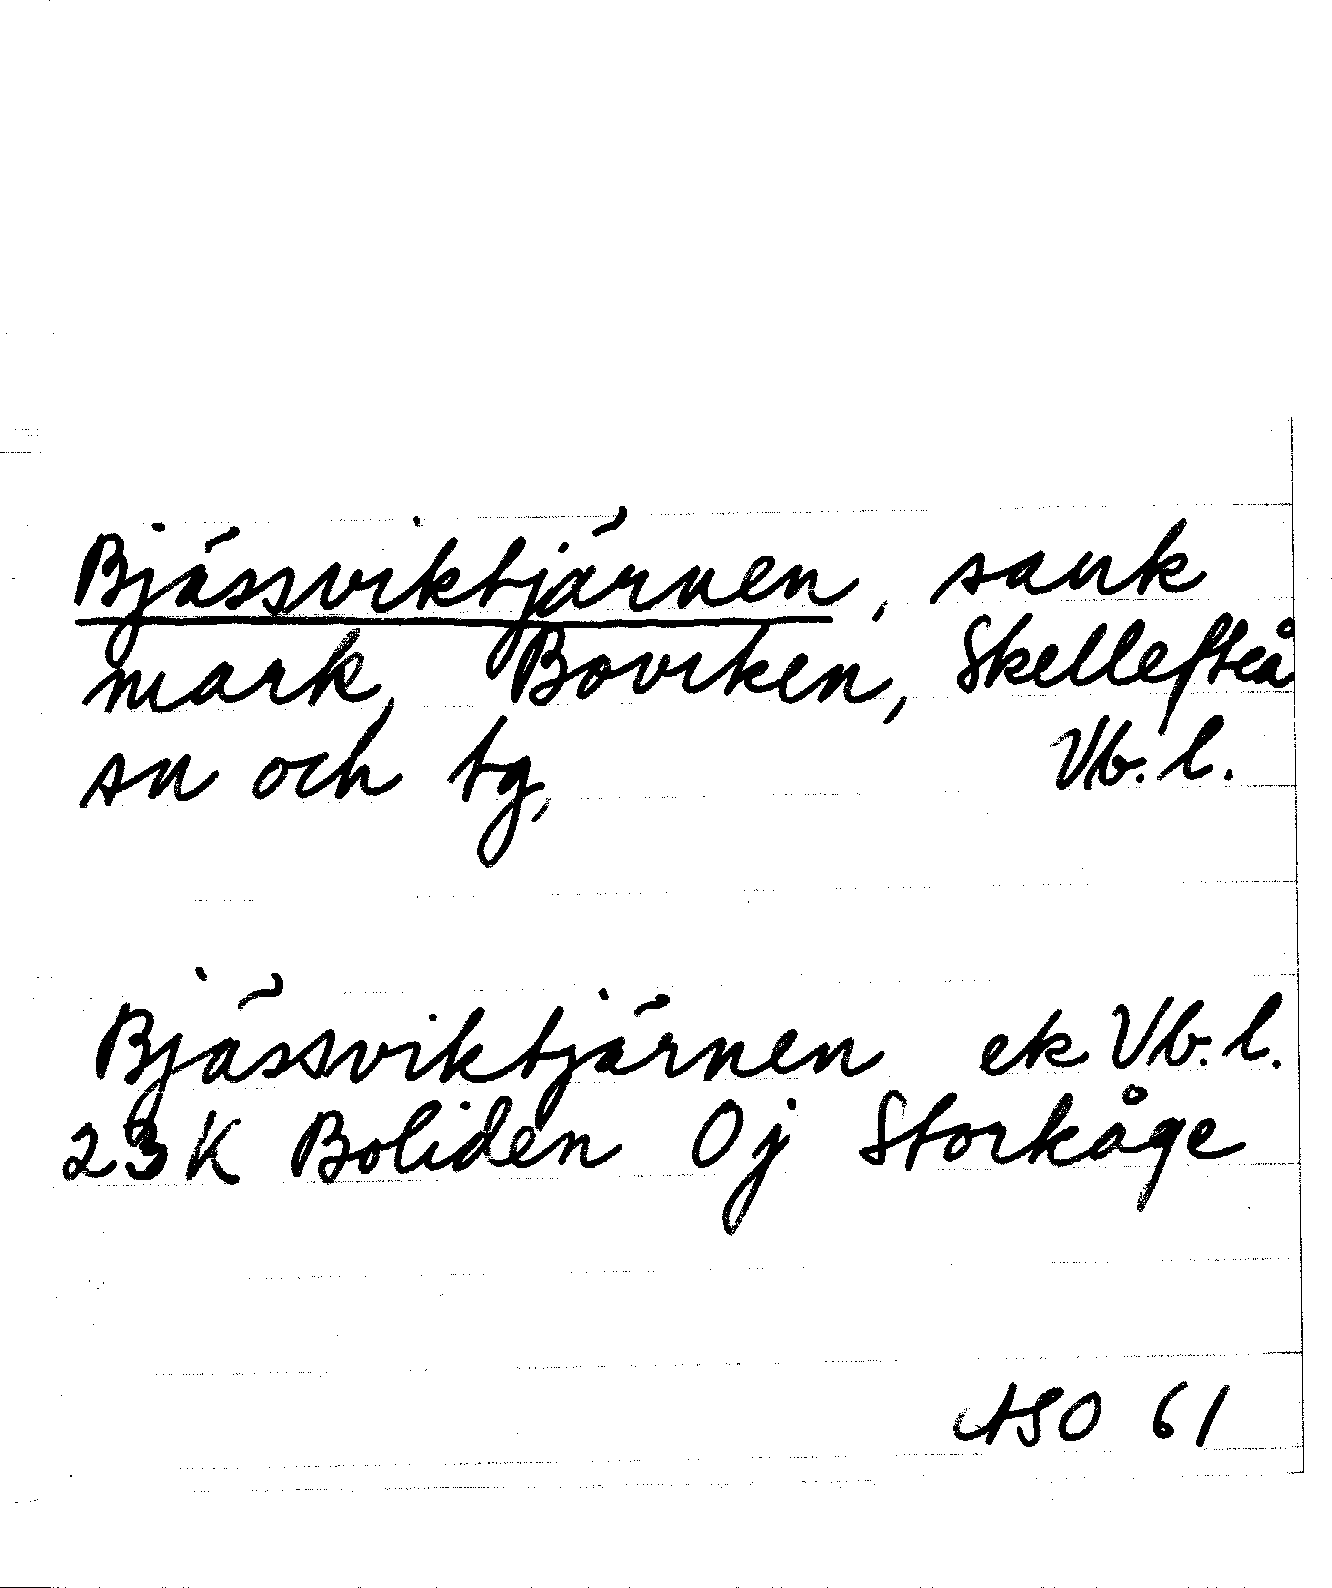 Bjässviktjärnen, sank
mark, Boviken, Skellefteå
sn och tg, Vb. l.
Bjässviktjärnen ek Vb. l.
23 K Boliden Oj Storkåge
ASO 61